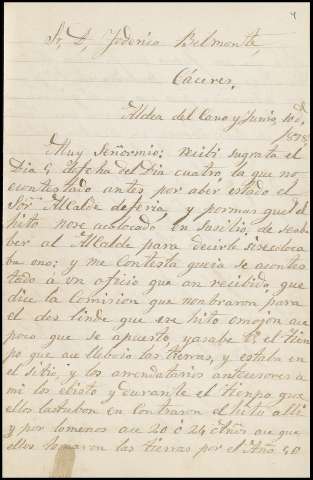 4
Sr. D. Federico Belmonte,
Cáceres.
Aldea del Cano y Junio, 10 d.
1878
Muy Señormio: recibi sugrata el
Dia 5 defecha del Dia cuatro, la que no
econtestado antes por aber estado el
Señr Allcalde deferia, y pormas quel el
hito nose acolocado en Susitio, de
ber al Allcalde para decirle sisecoloca
ba ono; y me Contesta que ia se acontes
tado á un oficio que an recibido, que
dice la Comision que nonbraron para
el des linde que ese hito emojon ace
poco que se apuerto, yasabe V. el tien
po que ace llebolio las tierras, y estaba en
el sitio y los arrendatarios antecesores a
mi los elisto y durante el tienpo que
ellos lastubon en Contraron el hito alli
y por lomenos ace 20 ó 24 Años ace que
ellos tomaron las tierras por el Año 50